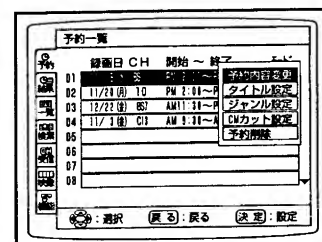 予約一覧
録画日 CH 開始 ~ 終了
01
02 11/20(月) 10 PM 2:00~P
03 12/22(金) BS7 AM11:30~A
04 11/ 3(金) C13 AM 9:30~A
05
06
07
08
予約内容変更
タイトル設定
ジャンル設定
CMカット設定
予約削除
予約
結果
一覧
検索
:選択 戻る:戻る 決定:設定